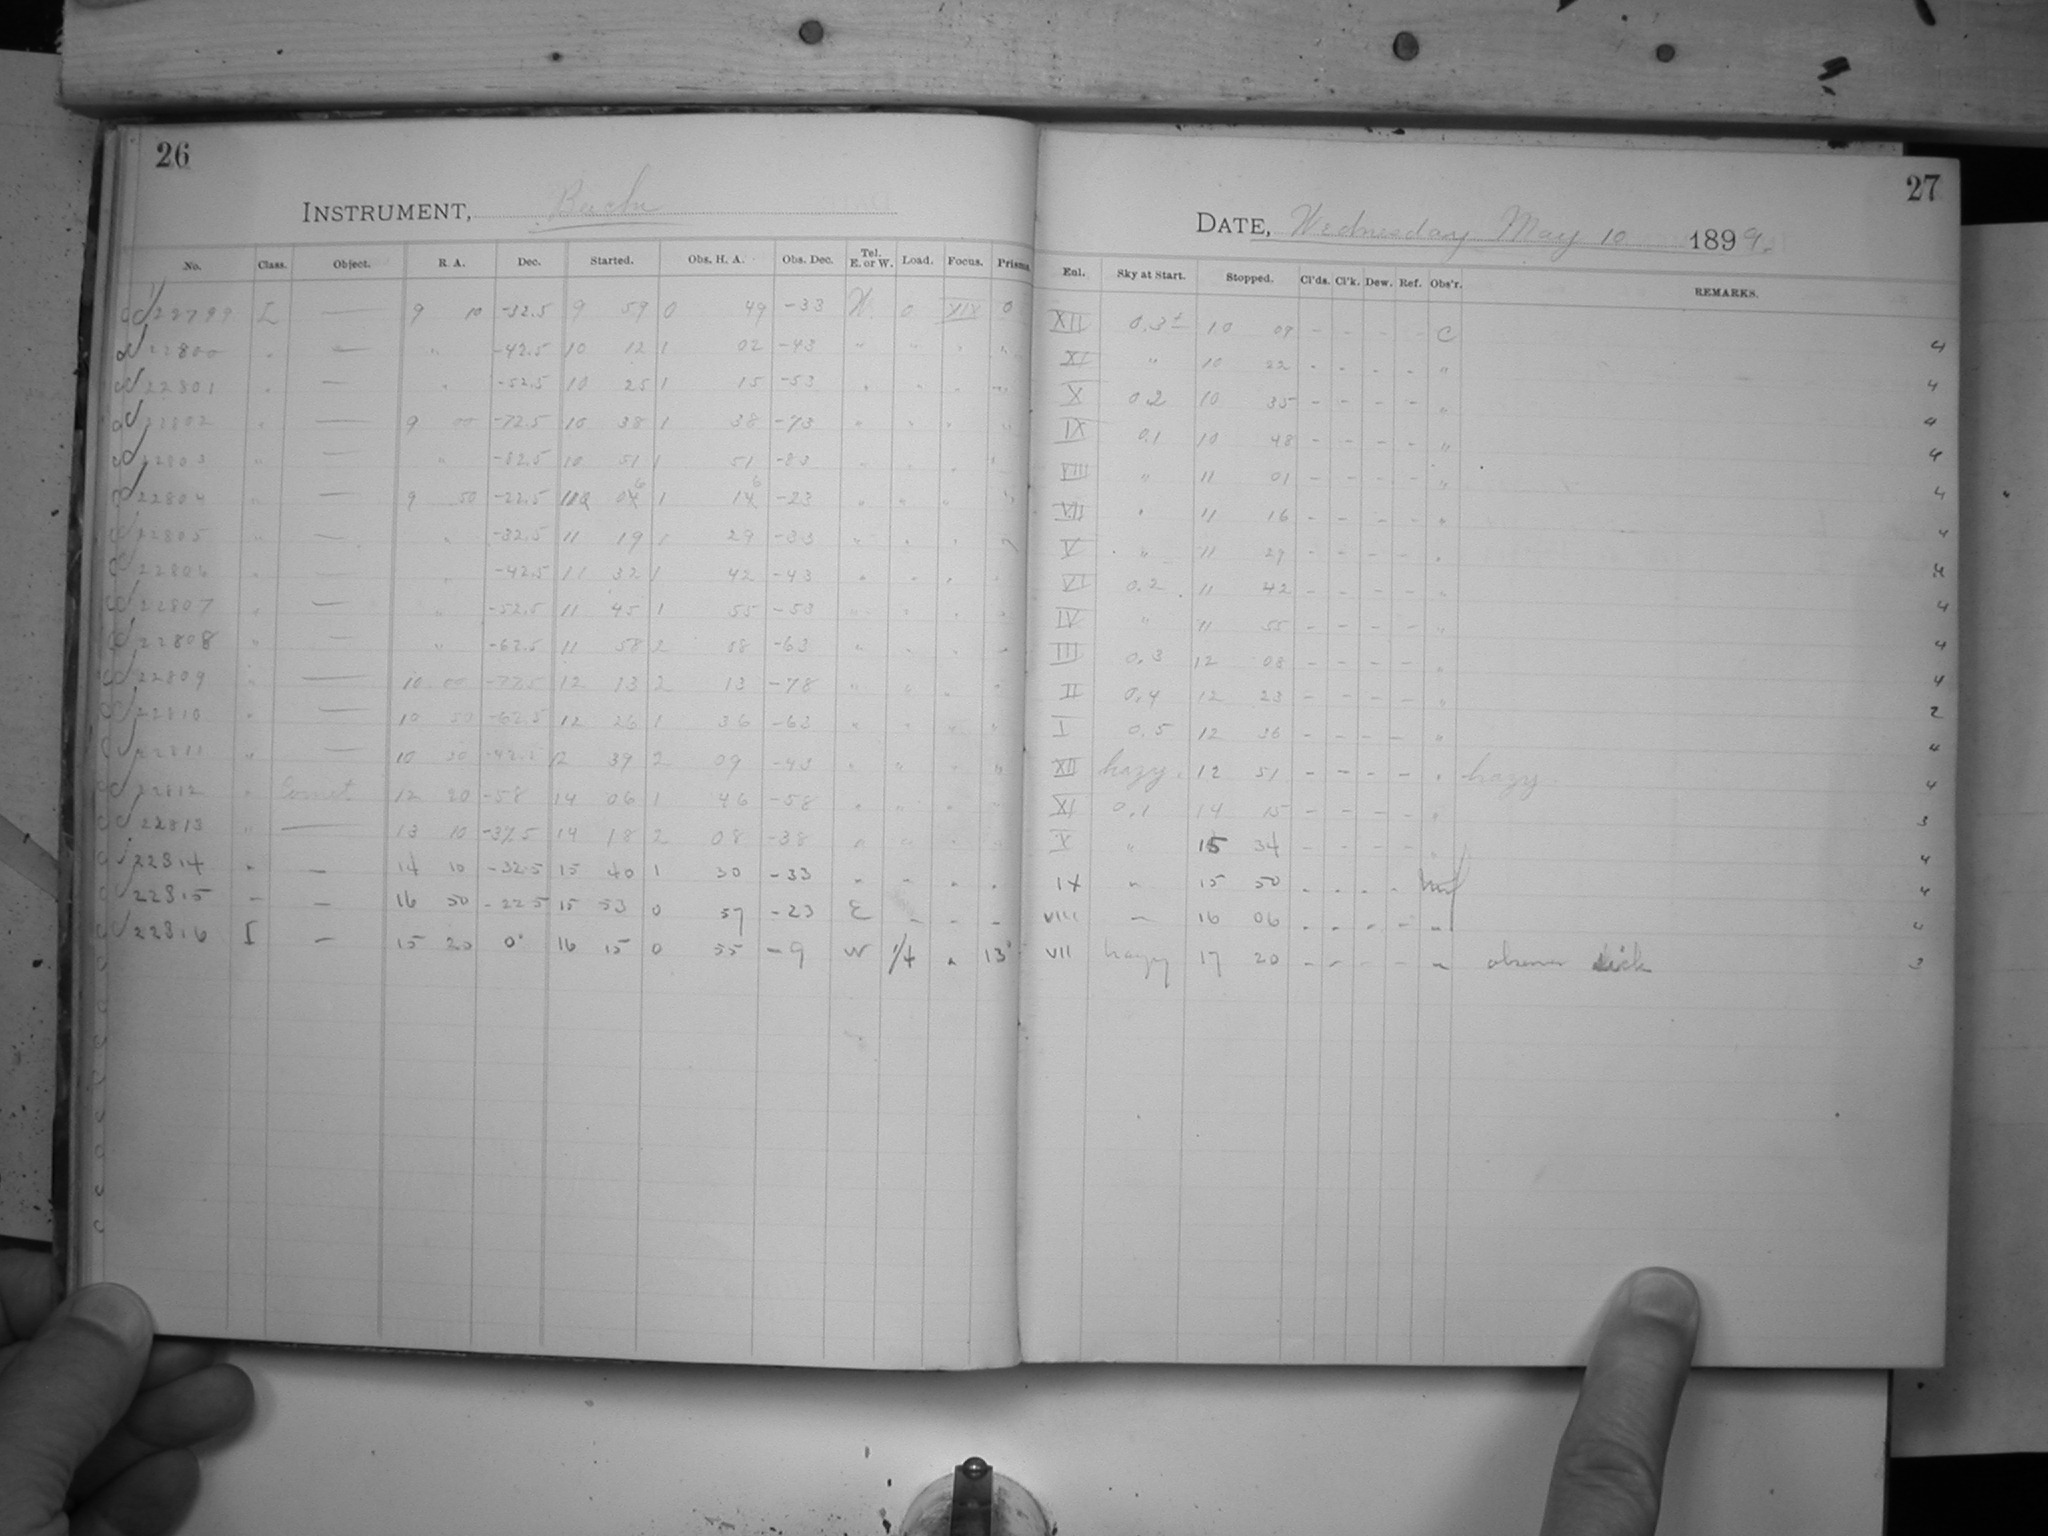 26
INSTRUMENT, Bache
No. Class. Object. R. A. Dec. Started. Obs. H. A. Obs. Dec. Tel. E. or W. Load. Focus. Prisms.
22799 L — 9 10 -32.5 9 59 0 49 -33 W. 0 XIX 0
22800 " — " -42.5 10 12 1 02 -43 " " " "
22801 " — " -52.5 10 25 1 15 -53 " " " "
22802 " — 9 00 -72.5 10 38 1 38 -73 " " " "
22803 " — " -82.5 10 51 1 51 -83 " " " "
22804 " — 9 50 -22.5 11 06 1 16 -23 " " " "
22805 " — " -32.5 11 19 1 29 -33 " " " "
22806 " — " -42.5 11 32 1 42 -43 " " " "
22807 " — " -52.5 11 45 1 55 -53 " " " "
22808 " — " -62.5 11 58 2 08 -63 " " " "
22809 " — 10 00 -77.5 12 13 2 13 -78 " " " "
22810 " — 10 50 -62.5 12 26 1 36 -63 " " " "
22811 " — 10 30 -42.5 12 39 2 09 -43 " " " "
22812 " Comet 12 20 -58 14 06 1 46 -58 " " " "
22813 " — 13 10 -37.5 14 18 2 08 -38 " " " "
22814 " — 14 10 -32.5 15 40 1 30 -33 " " " "
22815 – — 16 50 -22.5 15 53 0 57 -23 E – – –
22816 I — 15 20 0° 16 15 0 55 -9 W 1/4 " 13°
27
DATE, Wednesday May 10 1899.
Enl. Sky at Start. Stopped. Cl'ds. Cl'k. Dew. Ref. Obs'r. REMARKS.
XII 0.3± 10 09 - - - - C 4
XI " 10 22 - - - - " 4
X 0.2 10 35 - - - - " 4
IX 0.1 10 48 - - - - " 4
VIII " 11 01 - - - - " 4
VII " 11 16 - - - - " 4
V " 11 29 - - - - " 4
VI 0.2 11 42 - - - - " 4
IV " 11 55 - - - - " 4
III 0.3 12 08 - - - - " 4
II 0.4 12 23 - - - - " 2
I 0.5 12 36 - - - - " 4
XII hazy. 12 51 - - - - " hazy. 4
XI 0.1 14 15 - - - - " 3
X " 15 34 - - - - " 4
IX " 15 50 - - - - 4
VIII – 16 06 - - - - " 4
VII hazy 17 20 - - - - – observer sick 3